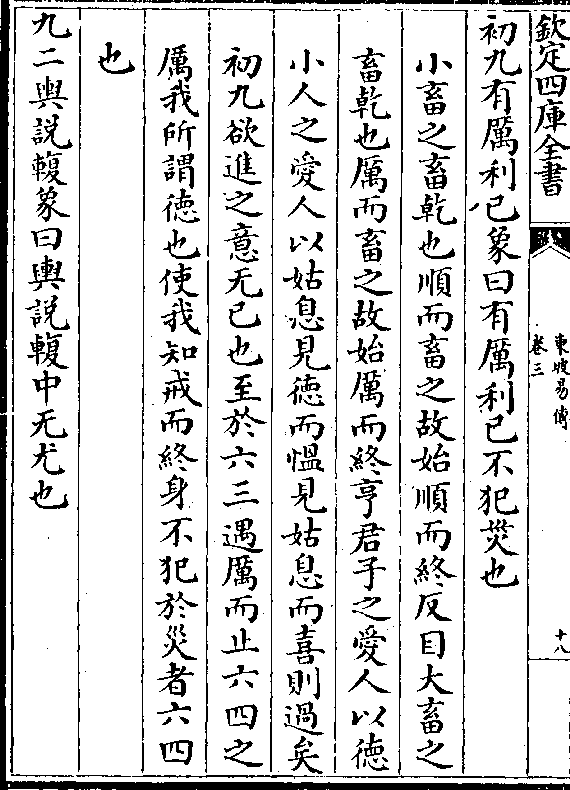 欽定四庫全書
東坡易傳
卷三
十八
初九有厲利已象曰有厲利已不犯災也
小畜之畜乾也順而畜之故始順而終反目大畜之
畜乾也厲而畜之故始厲而終亨君子之愛人以德
小人之愛人以姑息見徳而愠見姑息而喜則過矣
初九欲進之意无已也至於六三遇厲而止六四之
厲我所謂徳也使我知戒而終身不犯於災者六四
也
九二輿説輹象曰輿説輹中无尤也